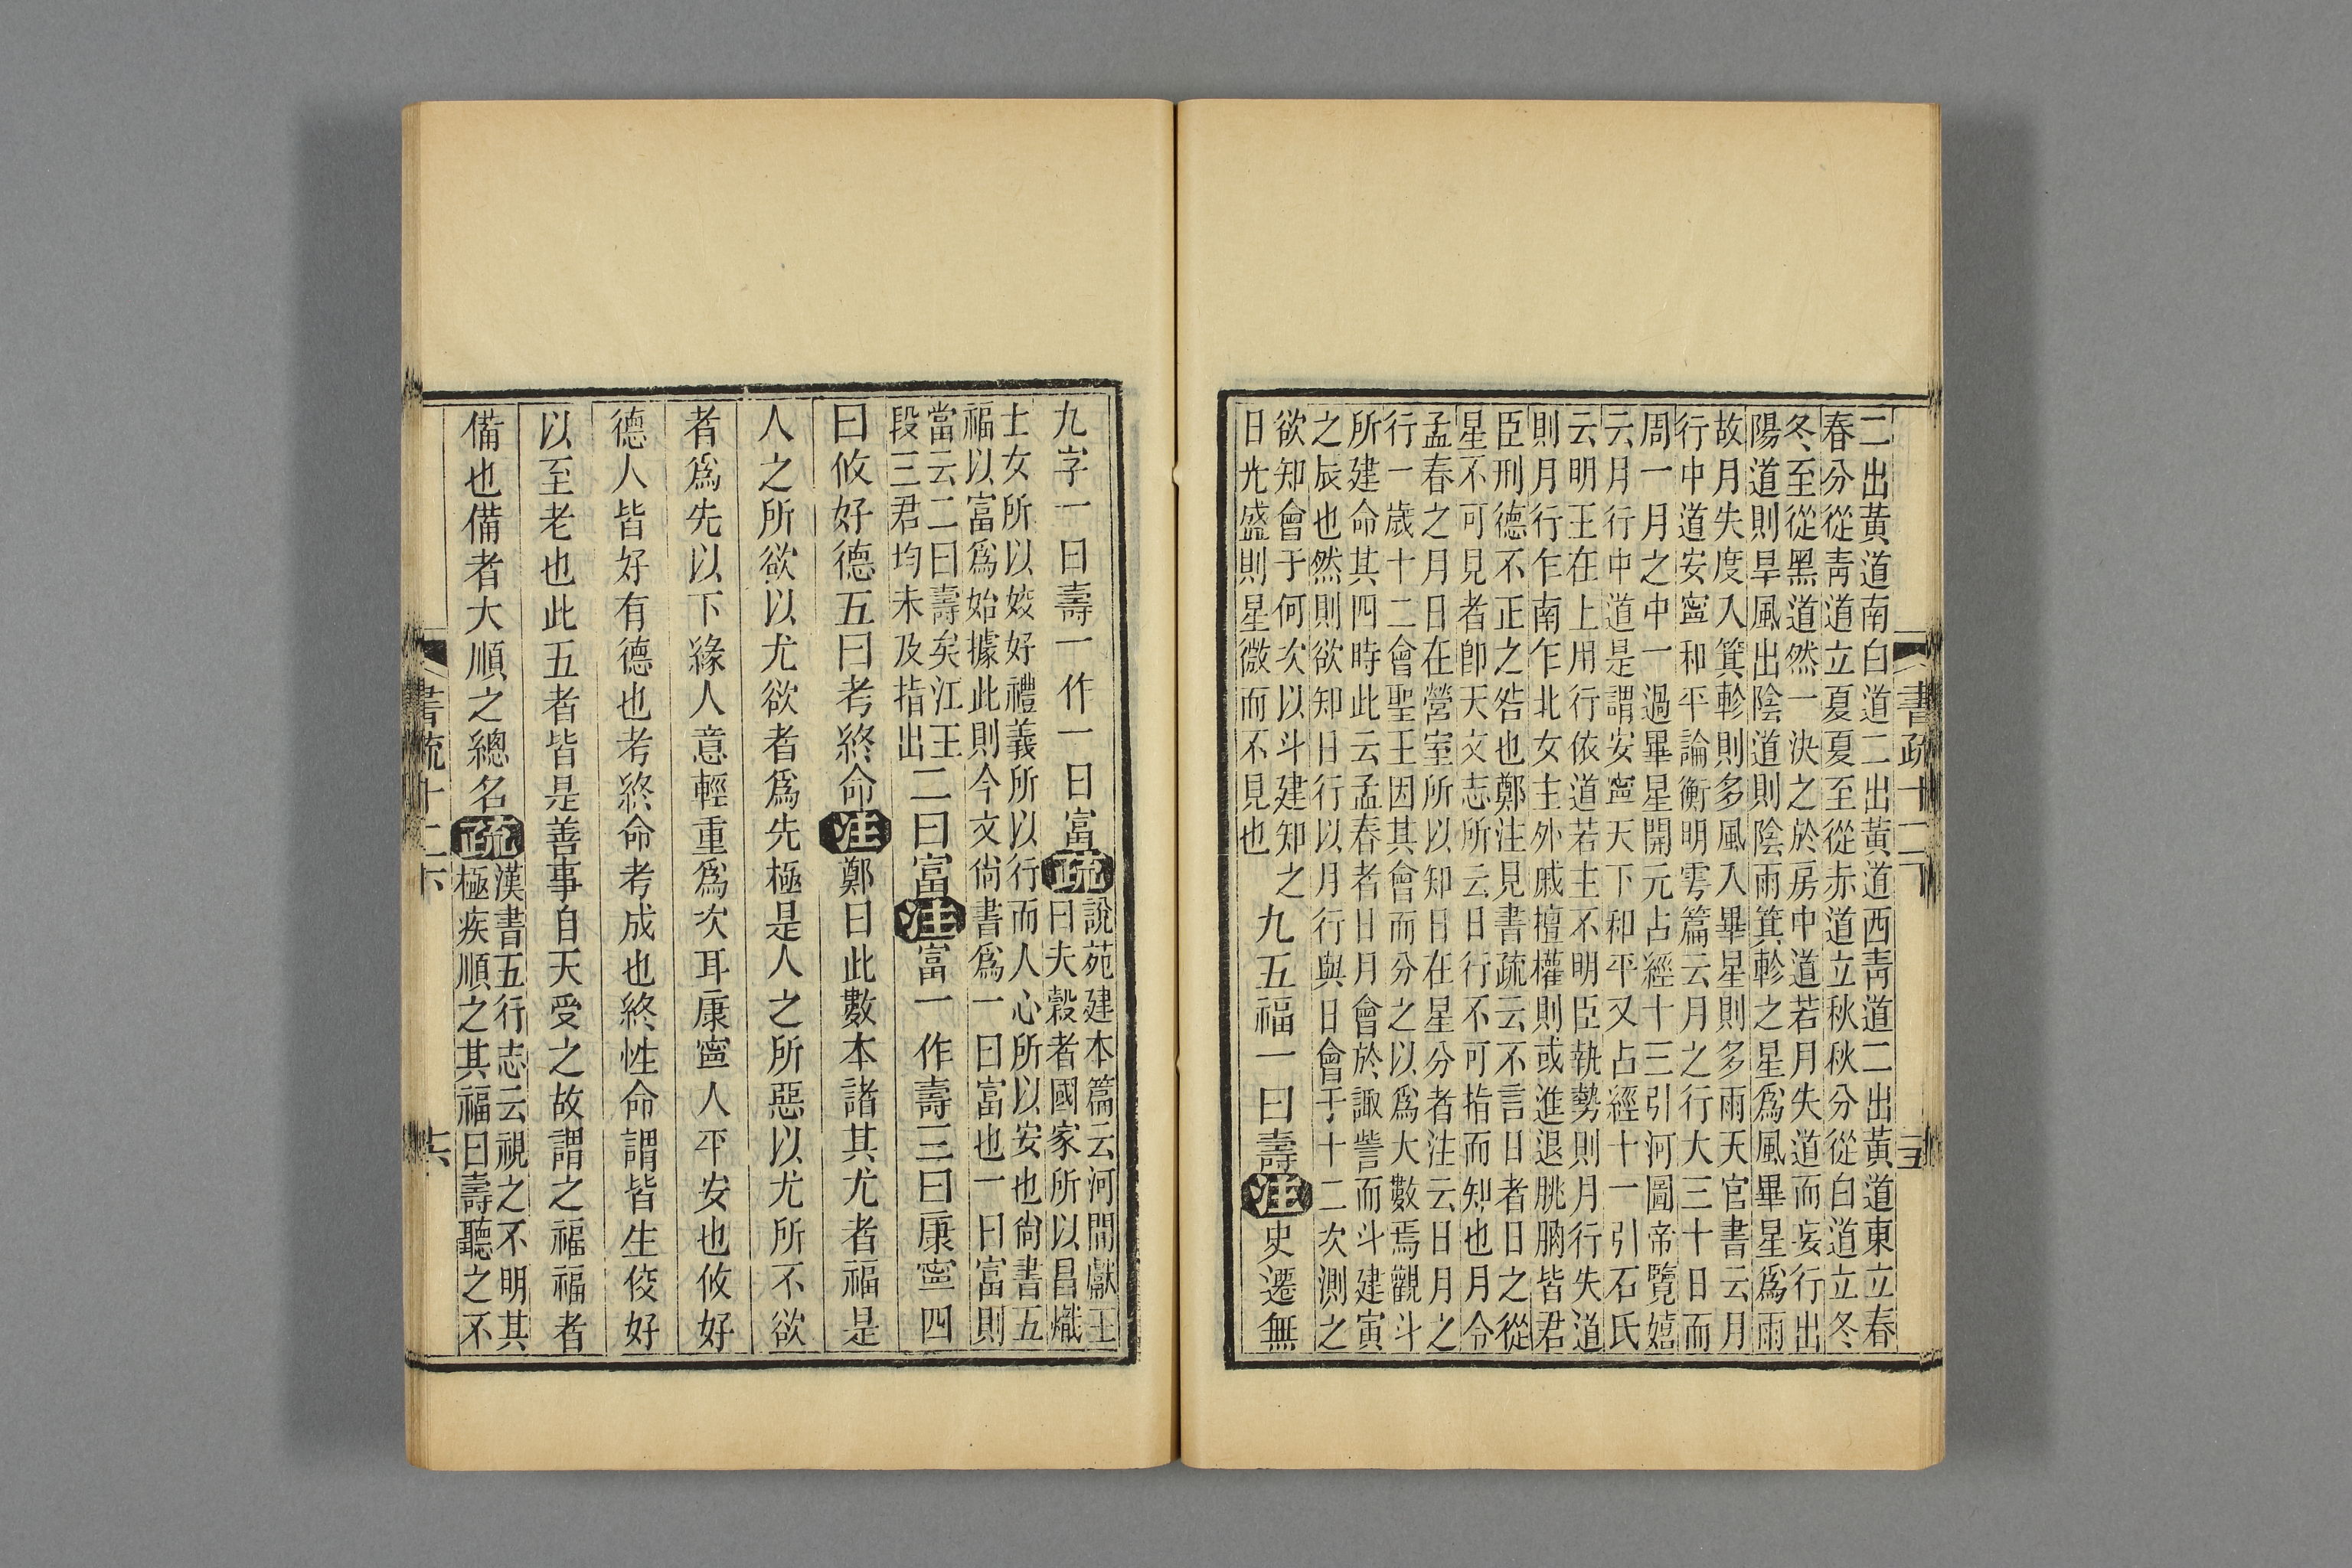 二出黃道南白道二出黃道西靑道二出黃道東立春
春分從靑道立夏夏至從赤道立秋秋分從白道立冬
冬至從黑道然一決之於房中道若月失道而妄行出
陽道則旱風出陰道則陰雨箕軫之星爲風畢星爲雨
故月失度入箕軫則多風入畢星則多雨天官書云月
行中道安寧和平論衡明雩篇云月之行天三十日而
周一月之中一過畢星開元占經十三引河圖帝覽嬉
云月行中道是謂安寧天下和平又占經十一引石氏
云明王在上用行依道若主不明臣執勢則月行失道
則月行乍南乍北女主外戚擅權則或進退朓朒皆君
臣刑德不正之咎也鄭注見書疏云不言日者日之從
星不可見者卽天文志所云日行不可指而知也月令
孟春之月日在營室所以知日在星分者注云日月之
行一歲十二會聖王因其會而分之以爲大數焉觀斗
所建命其四時此云孟春者日月會於諏訾而斗建寅
之辰也然則欲知日行以月行與日會于十二次測之
欲知會于何次以斗建知之
日光盛則星微而不見也
九五福一曰壽注史遷無
書疏十二下
五
九字一曰壽一作一曰富疏
說苑建本篇云河間獻王
曰夫穀者國家所以昌熾
士女所以姣好禮義所以行而人心所以安也尙書五
福以富爲始據此則今文尙書爲一曰富也一曰富則
當云二曰壽矣江王
段三君均未及指出
二曰富注富一作壽三曰康寧四
曰攸好德五曰考終命注鄭曰此數本諸其尤者福是
人之所欲以尤欲者爲先極是人之所惡以尤所不欲
者爲先以下緣人意輕重爲次耳康寧人平安也攸好
德人皆好有德也考終命考成也終性命謂皆生佼好
以至老也此五者皆是善事自天受之故謂之福福者
備也備者大順之總名疏
漢書五行志云視之不明其
極疾順之其福曰壽聽之不
書疏十二下
六